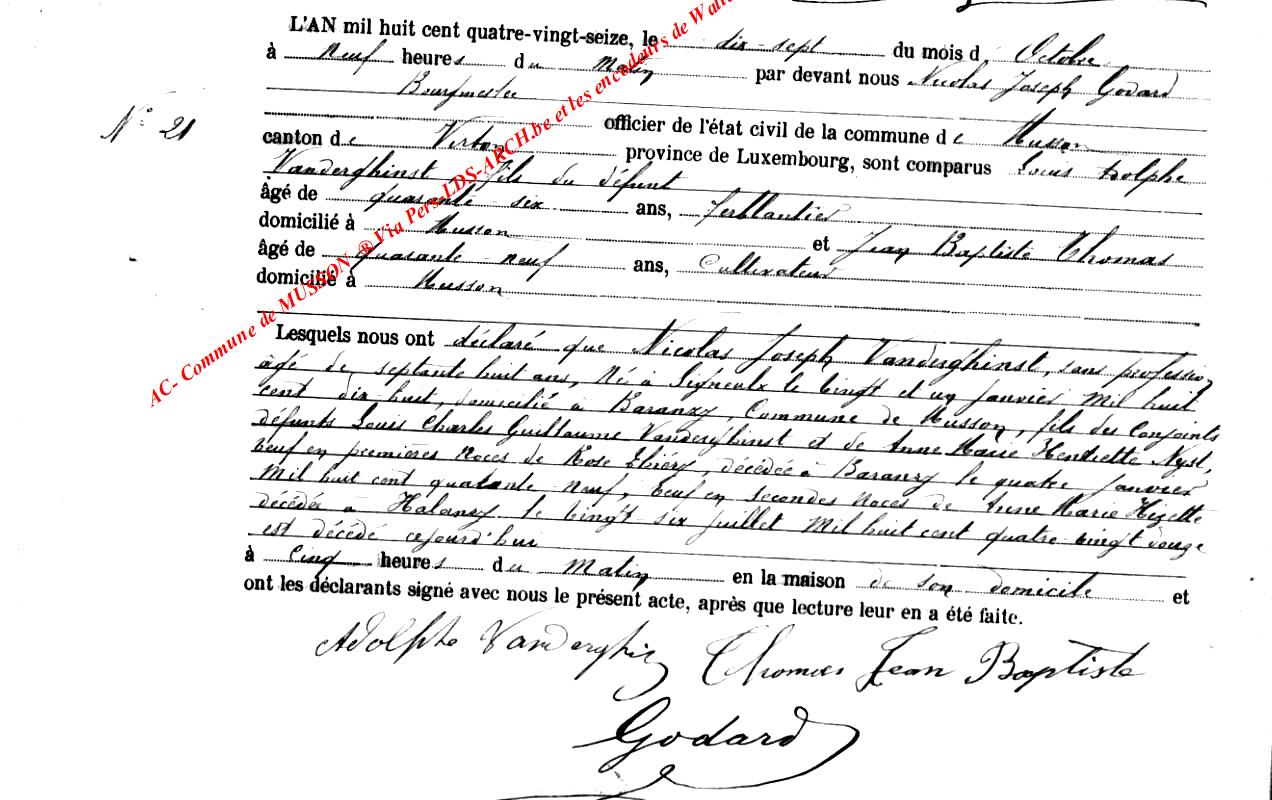 L'AN mil huit cent quatre-vingt-seize, le dix-sept du mois d' Octobre
à Neuf heures du Matin par devant nous Nicolas Joseph Godard
Bourgmestre
N° 21
officier de l'état civil de la commune de Musson
canton de Virton province de Luxembourg, sont comparus Louis Adolphe
Vanderghinst fils du défunt
âgé de quarante six ans, ferblantier
domicilié à Musson et Jean Baptiste Thomas
âgé de quarante neuf ans, Cultivateur
domicilié à Musson
Lesquels nous ont déclaré que Nicolas Joseph Vanderghinst, sans profession
âgé de septante huit ans, Né à Signeulx le vingt et un janvier Mil huit
cent dix huit, domicilié à Baranzy, Commune de Musson, fils des Conjoints
défunts Louis Charles Guillaume Vanderghinst et de Anne Marie Henriette Nyst,
veuf en premières Noces de Rose Thiéry, décédée à Baranzy le quatre Janvier
Mil huit cent quarante neuf, veuf en secondes Noces de Anne Marie Hizette
décédée à Halanzy le vingt six juillet Mil huit cent quatre vingt douze
est décédé cejourd'hui
à Cinq heures du Matin en la maison de son domicile et
ont les déclarants signé avec nous le présent acte, après que lecture leur en a été faite.
Adolphe Vanderghin
Thomas Jean Baptiste
Godard
AC- Commune de MUSSON ® Via Pers-LDS-ARCH.be et les encodeurs de